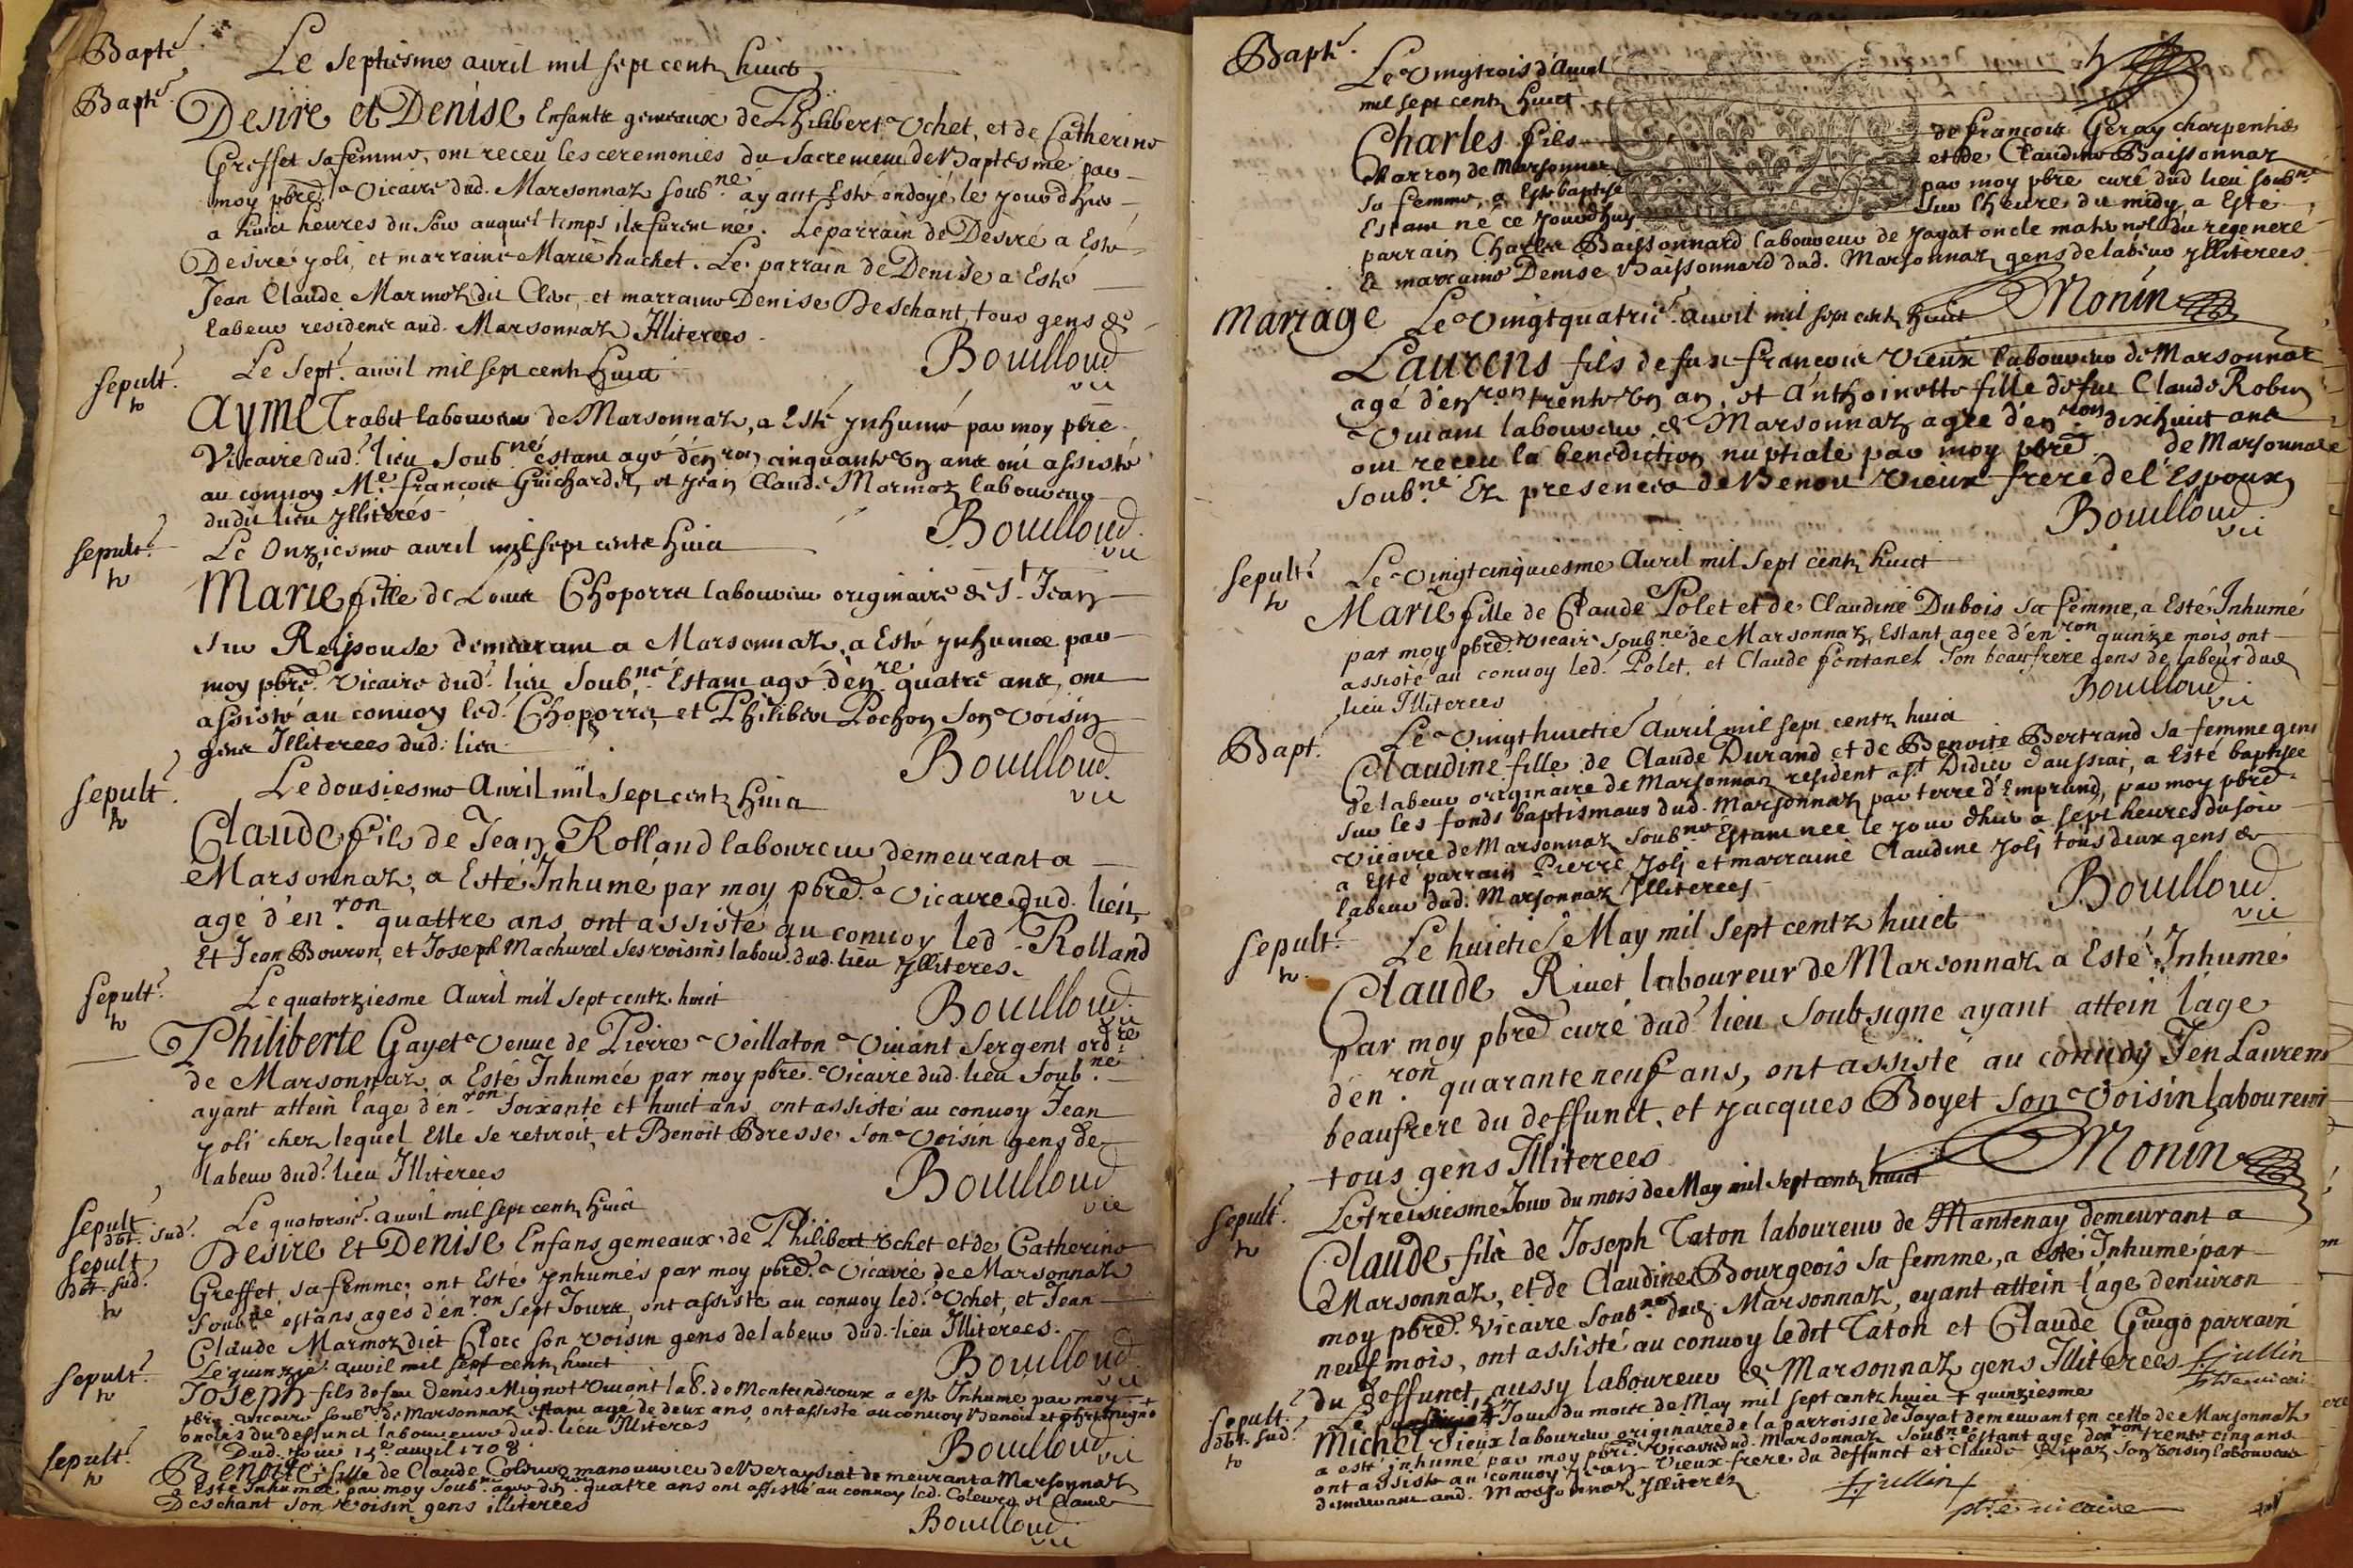 Bapte. Le septiesme auril mil sept centz huict
Bapte. Desire et Denise Enfants gemeaux de Philibert Vchet, et de Catherine
Greffet sa femme, ont receu les ceremonies du sacrement de Baptesme par
moy pbre. Vicaire dud. Marsonnaz soub.né ayant Esté ondoyé le jourdhuy
a huict heures du soir auquel temps ils furent né. Le parrain de Desiré a Esté
Desiré joli, et marraine Marie huchet. Le parrain de Denise a Esté
Jean Claude Marmoz dit Clerc, et marraine Denise Deschant, tous gens de
labeur residents aud. Marsonnaz Illiterees
Bouilloud
vic
sepult. Le sept. auril mil sept centz huict
Ayme Trabet laboureur de Marsonnaz, a Esté ynhumé par moy pbre
Vicaire dud. lieu soub.né estant agé d'en.ron cinquante vn ans ont assisté
au conuoy Me. françois Guichardet, et Jean Claude Marmoz laboureurs
dudit lieu ylliteres
Bouilloud
vic
sepult. Le Onziesme auril mil sept centz huict
Marie fille de Louis Choporre laboureur originaire de St. Jean
sur Reysouse demeurant a Marsonnaz, a Esté ynhumee par
moy pbre. Vicaire dud. lieu soub.né Estant agé d'en.re quatre ans, ont
assisté au conuoy led. Choporre, et Philibert Pochon son voisin
gens Illiterees dud. lieu
Bouilloud
vic
sepult. Le dousiesme Auril mil sept centz huict
Claude fils de Jean Rolland laboureur demeurant a
Marsonnaz, a Esté Inhumé par moy pbre. Vicaire dud. lieu,
age d'en.ron quattre ans, ont assisté au conuoy led. Rolland
Et Jean Bouron, et Joseph Machurel ses voisins labour. dud. lieu ylliteres.
Bouilloud
vic
sepult. Le quatorziesme Auril mil sept centz huict
Philiberte Gayet Veuue de Pierre Veillaton Viuant sergent ord.re
de Marsonnaz, a Esté Inhumée par moy pbre. Vicaire dud. lieu soub.né
ayant attein l'age d'en.ron soixante et huict ans, ont assisté au conuoy Jean
Joli chez lequel Elle se retiroit, et Benoit Bresse son Voisin gens de
labeur dud. lieu Illiterees
Bouilloud
vic
sepult. dbt. sud. Le quatorsie. auril mil sept centz huict
sepult dbt. sud. Desire Et Denise Enfans gemeaux de Philibert Vchet et de Catherine
Greffet, sa femme, ont Esté ynhumés par moy pbre. Vicaire de Marsonnaz
soub.né estans agés d'en.ron sept Jours, ont assisté au conuoy led. Vchet, et Jean
Claude Marmoz dict Clerc son voisin gens de labeur dud. lieu Illiterees.
Bouilloud
vic
sepult. Le quinzie. auril mil sept centz huict
Joseph fils de feu Denis Mignot Viuant lab. de Montandroux a esté Inhumé par moy
pbre vicaire soub.né de Marsonnaz estant agé de deux ans, ont assisté au conuoy Benoit et
oncles du deffunct laboureurs dud. lieu Illiteres
Bouilloud
vic
Dud. jour 15e. auril 1708
sepult. Benoite fille de Claude Coleurs manouurier de demeurant a Marsonnaz
a Esté Inhumée par moy soub.né agee d'en.ron quatre ans ont assisté au conuoy led. Coleurs et Claude
Deschant son Voisin gens illiterees
Bouilloud
vic
Bapte. Le Vingtrois d'Auril
mil sept centz huict
Charles fils de françois Geray charpentier
charron de Marsonnaz et de Claudine Baissonnaz
sa femme, a Esté baptise par moy pbre curé dud lieu soub.né
Estant né ce jourdhuy sur l'heure du midy, a Esté
parrain Charles Baissonnard laboureur de Jayat oncle maternel du regeneré
Et marraine Denise Baissonnard dud. Marsonnaz gens de labeur ylliterees
Monin
Mariage Le Vingtquatrie. auril mil sept centz huict
Laurens fils de feu françois Vieux laboureur de Marsonnaz
agé d'en.ron trente vn an, et Anthoinette fille de feu Claude Robin
Viuant laboureur de Marsonnaz agee d'en.ron dixhuict ans
ont receu la benediction nuptiale par moy pbre. de Marsonnaz
soub.né Ez presences de Benoit Vieux frere de l'Espoux
Bouilloud
vic
sepult. Le Vingtcinquiesme Auril mil sept centz huict
Marie fille de Claude Polet et de Claudine Dubois sa femme, a Esté Inhumé
par moy pbre. Vicaire soub.né de Marsonnaz, Estant agee d'en.ron quinze mois, ont
assisté au conuoy led. Polet, et Claude fontanel son beaufrere gens de labeur dud
lieu Illiterees
Bouilloud
vic
Bapt. Le Vingthuictie. Auril mil sept centz huict
Claudine fille de Claude Durand et de Benoite Bertrand sa femme gens
de labeur originaire de Marsonnaz resident a St. Didier d'aussiat, a Esté baptisee
sur les fonds baptismaux dud. Marsonnaz par terre d'Emprund, par moy pbre.
Vicaire de Marsonnaz soub.né Estant nee le jour dhier a sept heures du soir
a Esté parrain Pierre Joli et marraine Claudine Joli tous deux gens de
labeur dud. Marsonnaz Illiterees
Bouilloud
vic
sepult. Le huictie. May mil sept centz huict
Claude Riuet laboureur de Marsonnaz a Esté Inhumé
par moy pbre curé dud. lieu soubsigne ayant attein l'age
d'en.ron quarante neuf ans, ont assisté au conuoy Jen Laurens
beaufrere du deffunct, et Jacques Boyet son Voisin laboureurs
tous gens Illiterees
Monin
sepult. Le treisiesme Jour du mois de May mil sept centz huict
Claude fils de Joseph Taton laboureur de Mantenay demeurant a
Marsonnaz, et de Claudine Bourgeois sa femme, a esté Inhumé par
moy pbre. Vicaire soub.né dud. Marsonnaz, ayant attein l'age denuiron
neuf mois, ont assisté au conuoy ledit Taton et Claude Guigo parrain
du deffunct aussy laboureur de Marsonnaz gens Illiterees
sepult. dbt. sud. Le 15 Jour du mois de May mil sept centz huict + quinziesme
Michel Vieux laboureur originaire de la parroisse de Jayat demeurant en celle de Marsonnaz
a esté inhumé par moy pbre. Vicaire dud. Marsonnaz soub.né Estant age d'en.ron trente cinq ans
ont assisté au conuoy Jean Vieux frere du deffunct et Claude Ripaz son voisin laboureurs
demeurant aud. Marsonnaz Illiterez
Jullin
ptre uicaire